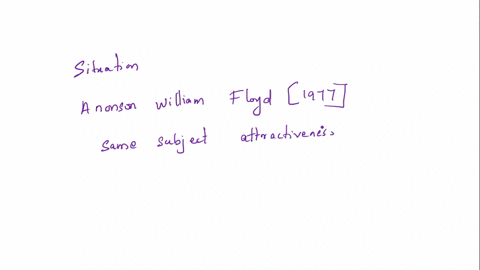 Situation
Anonson william Floyd [1977]
same subject attractiveness.